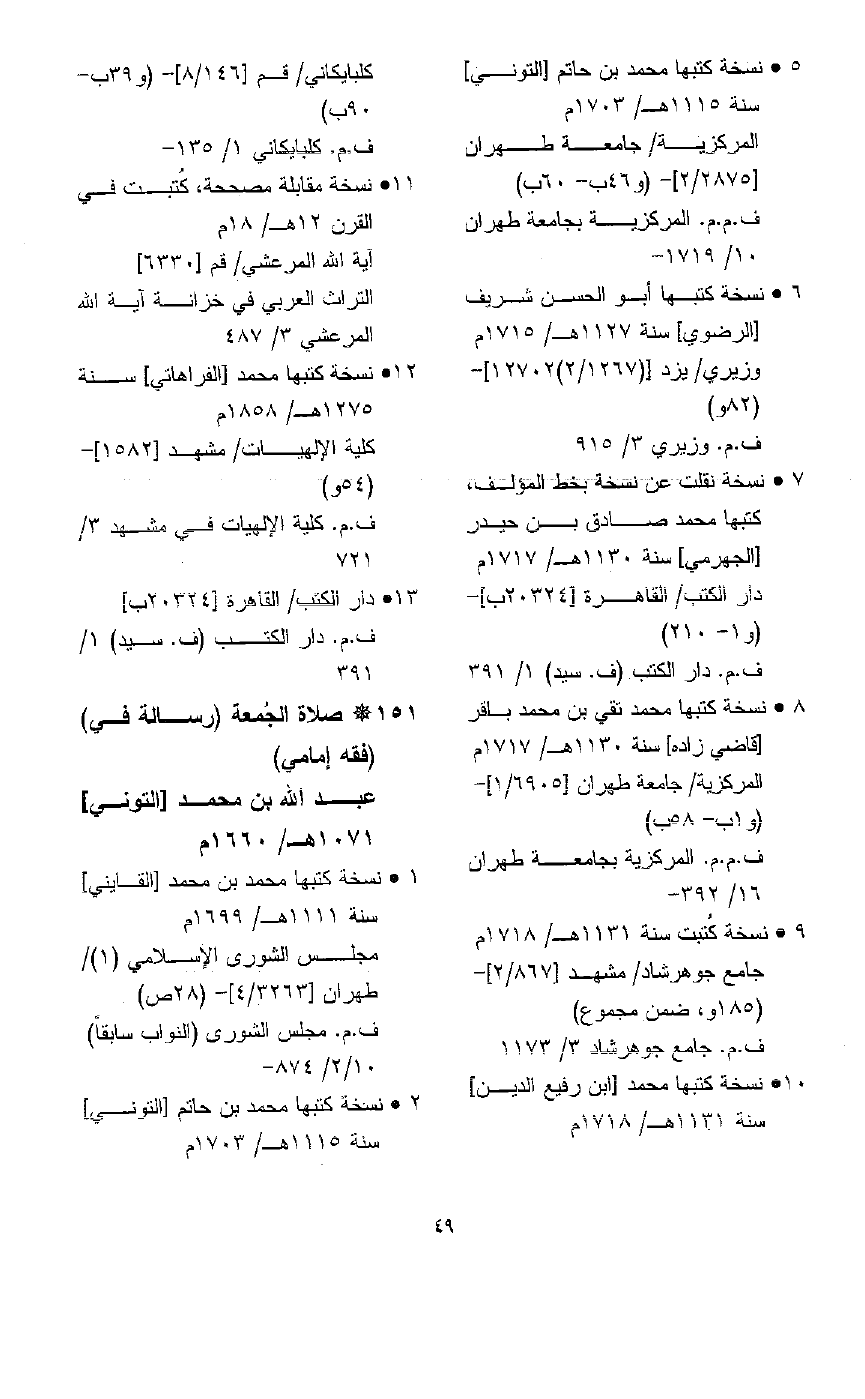 ٥ • نسخة كتبها محمد بن حاتم [التوني]
سنة ١١١٥هـ/ ١٧٠٣م
المركزية/ جامعة طهران
[٢/٢٨٧٥]- (و٤٦ب- ٦٠ب)
ف.م.م. المركزية بجامعة طهران
١٠/ ١٧١٩-
٦ • نسخة كتبها أبو الحسن شريف
[الرضوي] سنة ١١٢٧هـ/ ١٧١٥م
وزيري/ يزد [(٢/١٢٦٧)١٢٧٠٢]-
(٨٢و)
ف.م. وزيري ٣/ ٩١٥
٧ • نسخة نقلت عن نسخة بخط المؤلف،
كتبها محمد صادق بن حيدر
[الجهرمي] سنة ١١٣٠هـ/ ١٧١٧م
دار الكتب/ القاهرة [٢٠٣٢٤ب]-
(و١- ٢١٠)
ف.م. دار الكتب (ف. سيد) ١/ ٣٩١
٨ • نسخة كتبها محمد تقي بن محمد باقر
[قاضي زاده] سنة ١١٣٠هـ/ ١٧١٧م
المركزية/ جامعة طهران [١/٦٩٠٥]-
(و١ب- ٥٨ب)
ف.م.م. المركزية بجامعة طهران
١٦/ ٣٩٢-
٩ • نسخة كُتبت سنة ١١٣١هـ/ ١٧١٨م
جامع جوهرشاد/ مشهد [٢/٨٦٧]-
(١٨٥و، ضمن مجموع)
ف.م. جامع جوهرشاد ٣/ ١١٧٣
١٠• نسخة كتبها محمد [ابن رفيع الدين]
سنة ١١٣١هـ/ ١٧١٨م
كلبايكاني/ قم [٨/١٤٦]- (و٣٩ب-
٩٠ب)
ف.م. كلبايكاني ١/ ١٣٥-
١١• نسخة مقابلة مصححة، كُتبت في
القرن ١٢هـ/ ١٨م
آية الله المرعشي/ قم [٦٣٣٠]
التراث العربي في خزانة آية الله
المرعشي ٣/ ٤٨٧
١٢• نسخة كتبها محمد [الفراهاني] سنة
١٢٧٥هـ/ ١٨٥٨م
كلية الإلهيات/ مشهد [١٥٨٢]-
(٥٤و)
ف.م. كلية الإلهيات في مشهد ٣/
٧٢١
١٣• دار الكتب/ القاهرة [٢٠٣٢٤ب]
ف.م. دار الكتب (ف. سيد) ١/
٣٩١
١٥١ ❊ صلاة الجُمعة (رسالة في)
(فقه إمامي)
عبد الله بن محمد [التوني]
١٠٧١هـ/ ١٦٦٠م
١ • نسخة كتبها محمد بن محمد [القايني]
سنة ١١١١هـ/ ١٦٩٩م
مجلس الشورى الإسلامي (١)/
طهران [٤/٣٢٦٣]- (٢٨ص)
ف.م. مجلس الشورى (النواب سابقاً)
٢/١٠/ ٨٧٤-
٢ • نسخة كتبها محمد بن حاتم [التوني]
سنة ١١١٥هـ/ ١٧٠٣م
٤٩